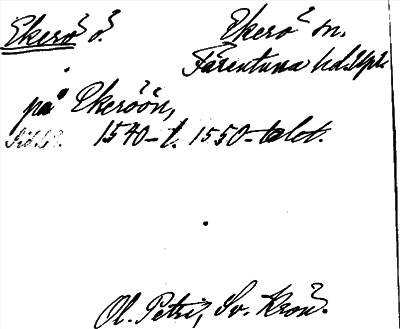 Ekerö ö. Ekerö sn.
Färentuna hd. Upl.
på Ekeröön,
1540- t. 1550-talet.
Ol. Petri, Sv. Krön.